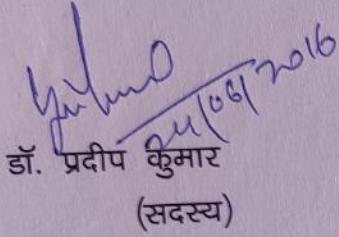 24/06/2016
डॉ. प्रदीप कुमार
(सदस्य)